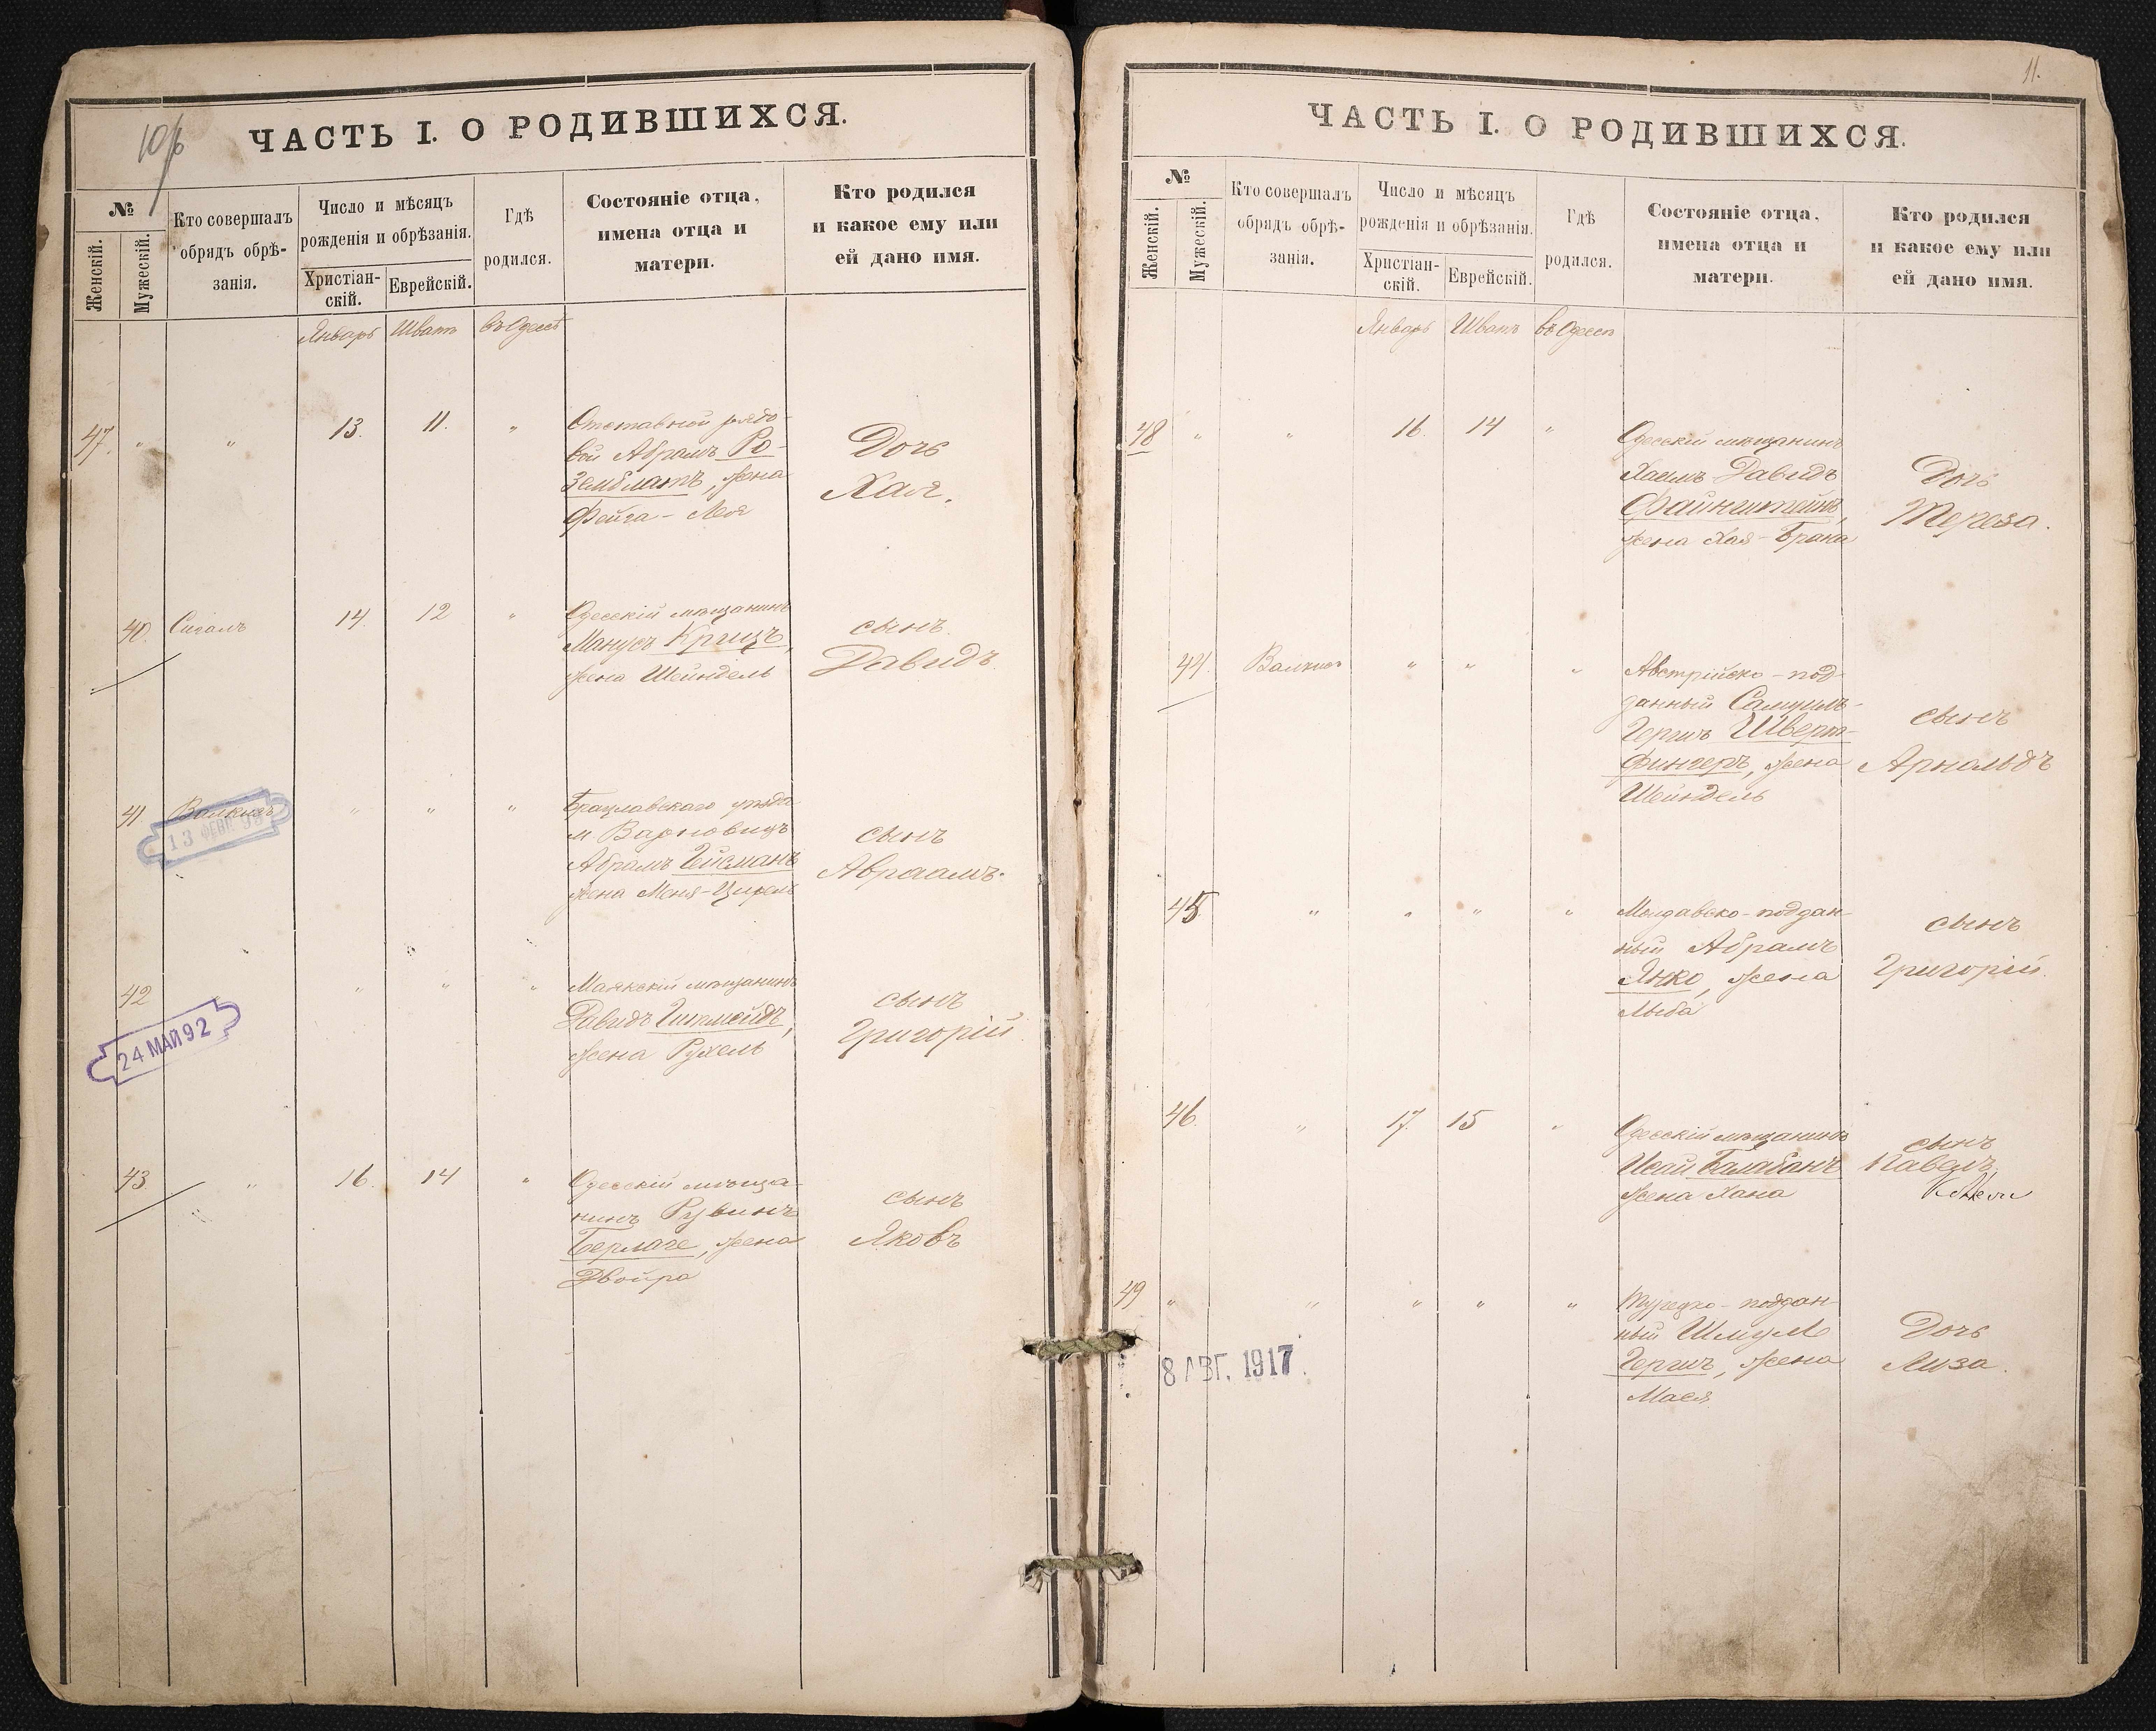 ЧАСТЬ I. О РОДИВШИХСЯ.
№
Женскій.
Мужескій.
Кто совершалъ
обрядъ обрѣ-
занія.
Число и мѣсяцъ
рожденія и обрѣзанія.
Христіан-
скій.
Еврейскій.
Гдѣ
родился.
Состояніе отца,
имена отца и
матери.
Кто родился
и какое ему или
ей дано имя.
Январь Шватъ въ Одессѣ
47. " " 13. 11. "
Отставной рядо-
вой Абрамъ Ро-
земблатъ, жена
Фейга - Лея
Дочь
Хая.
40. Сигалъ 14. 12 "
Одесскій мѣщанинъ
Манусъ Крицъ,
жена Шейндель
сынъ
Давидъ
41. " " "
13 ФЕВР 98
Брацлавскаго уѣзда
м.
Абрамъ
жена Меня-
сынъ
Авраамъ.
42 " " "
24 МАЙ 92
Маякскій мѣщанинъ
Давидъ
жена Рухель
сынъ
Григорій
43. " 16. 14 "
Одесскій мѣща-
нинъ Рувинъ
Берлаге, жена
Двойра
сынъ
Яковъ
11.
ЧАСТЬ I. О РОДИВШИХСЯ.
№
Женскій.
Мужескій.
Кто совершалъ
обрядъ обрѣ-
занія.
Число и мѣсяцъ
рожденія и обрѣзанія.
Христіан-
скій.
Еврейскій.
Гдѣ
родился.
Состояніе отца,
имена отца и
матери.
Кто родился
и какое ему или
ей дано имя.
Январь Шватъ въ Одессѣ
48 " " 16. 14 "
Одесскій мѣщанинъ
Хаимъ Давидъ
Файнштейнъ,
жена Хая - Брана
Дочь
Тереза.
44. " " "
Австрійско - под-
данный Самуилъ-
Гершъ Шверт-
фингеръ, жена
Шейндель
сынъ
Арнольдъ
45. " " " "
Молдавско - поддан-
ный Абрамъ
Янко, жена
Лыба
сынъ
Григорій.
46. " 17. 15 "
Одесскій мѣщанинъ
Исай Балабанъ
жена Хана
сынъ
Павелъ,
49 " " " " "
8 АВГ. 1917.
Турецко - поддан-
ный Шмуль
Гершъ, жена
Мася
Дочь
Лиза.